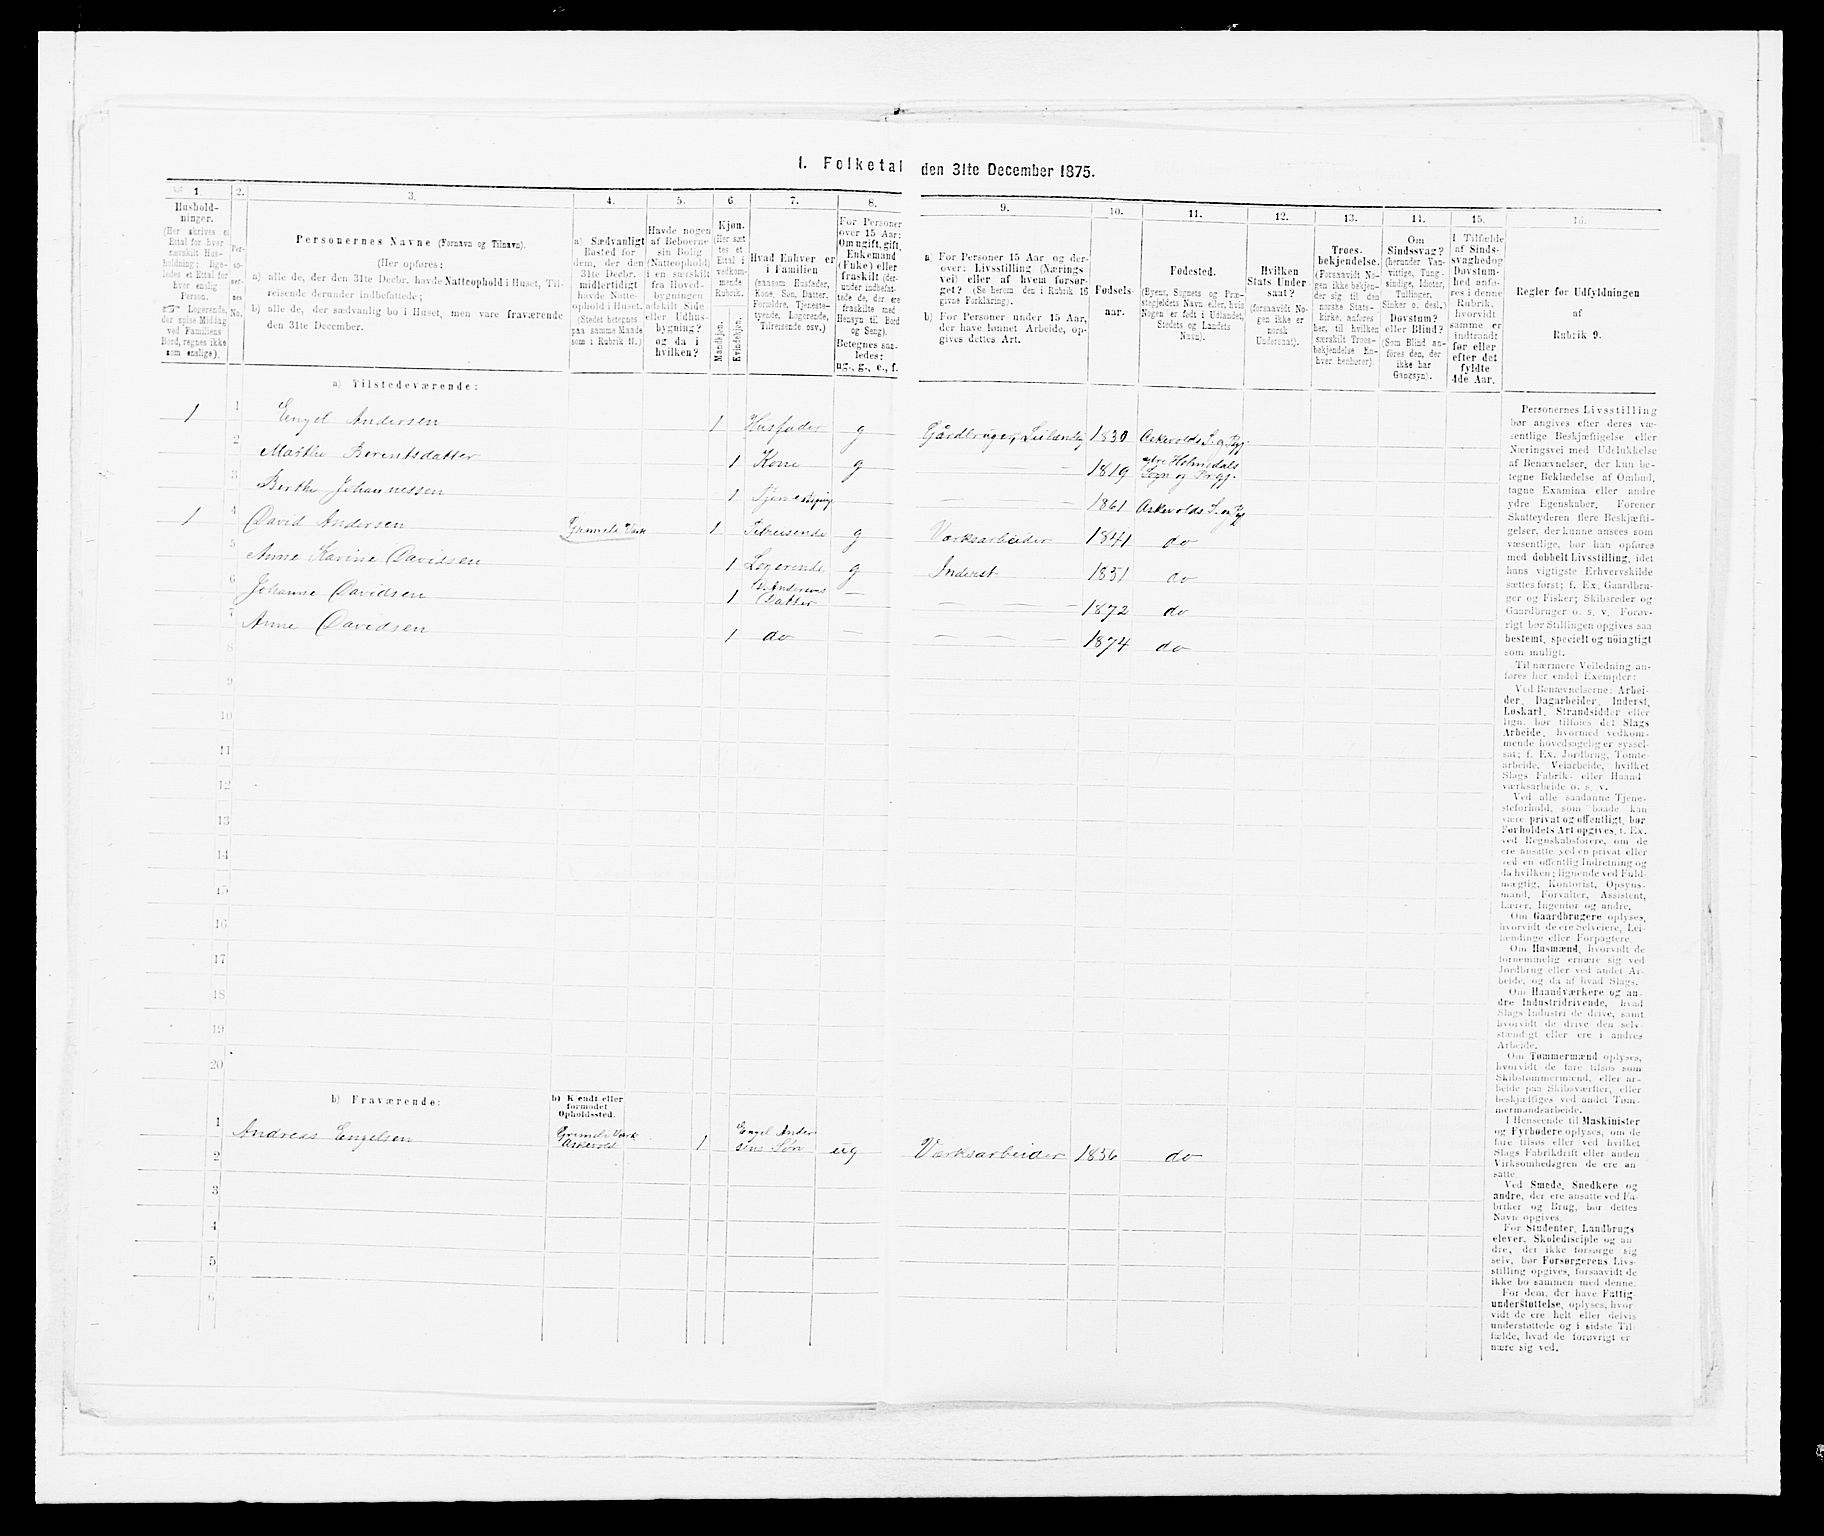 1. Folketal den 31te December 1875.
1. 2. 3. 4. 5. 6 7. 8. 9. 10. 11. 12. 13. 14. 15. 16.
Hushold-
ninger.
(Her skrives et
Ettal for hver
særskilt Hus-
holdning; lige-
ledes et Ettal for
hver enslig
Person.
Logerende,
der spise Middag
ved Familiens
Bord, regnes ikke
som enslige).
Per-
so-
ner-
nes
No.
Personernes Navne (Fornavn og Tilnavn).
(Her opføres:
a) alle de, der den 31te Decbr. havde Natteophold i Huset, Til-
reisende derunder indbefattede;
b) alle de, der sædvanlig bo i Huset, men vare fraværende
den 31te December.
a) Sædvanligt
Bosted for
dem, der den
31te Decbr.
midlertidigt
havde Natte-
ophold i Huset.
(Stedet betegnes
paa samme Maade
som i Rubrik 11.)
Havde nogen
af Beboerne
sin Bolig
(Natteophold)
i en særskilt
fra Hoved-
bygningen
adskilt Side
eller Udhus-
bygning?
og da i
hvilken?
Kjøn.
(Her sæt
tes et
Ettal i
vedkom-
mende
Rubrik.
Mandkjøn.
Kvindekjøn.
Hvad Enhver er
i Familien
(saasom Husfader,
Kone, Søn, Datter,
Forældre, Tjeneste-
tyende, Logerende,
Tilreisende osv.)
For Personer
over 15 Aar:
Om ugift, gift,
Enkemand
(Enke) eller
fraskilt (der-
under indbefat-
tede de, der ere
fraskilte med
Hensyn til Bord
og Seng).
Betegnes saa-
ledes:
ug., g., e., f.
a) For Personer 15 Aar og der-
over: Livsstilling (Nærings
vei) eller af hvem forsør-
get? (Se herom den i Rubrik 16
givne Forklaring).
b) For Personer under 15 Aar,
der have lønnet Arbeide, op-
gives dettes Art.
Fødsels-
aar.
Fødested.
(Byens, Sognets og Præ-
stegjeldets Navn eller, hvis
Nogen er født i Udlandet,
Stedets og Landets
Navn).
Hvilken
Stats Under
saat?
(forsaavidt No-
gen ikke er
norsk
Undersaat).
Troes-
bekjendelse.
(Forsaavidt No-
gen ikke bekjen-
der sig til den
norske Stats-
kirke, anføres
her, til hvilken
særskilt Troes-
bekjendelse En-
hver henhører).
Om
Sindssvag?
(herunder Van-
vittige, Tung-
sindige, Idioter,
Tullinger,
Sinker o. desl.)
Døvstum?
eller Blind?
(Som Blind an-
føres den, der
ikke har
Gangsyn).
I Tilfælde
af Sinds-
svaghed og
Døvstum-
hed anfø-
res i denne
Rubrik,
hvorvidt
samme er
indtraadt
før eller
efter det
fyldte
4de Aar.
Regler for Udfyldningen
af
Rubrik 9.
a) Tilstedeværende:
1 1 Engel Andersen 1 Husfader g Gårdbruger, Leilænding 1830 Askevolds S. og Pgj.
2 Marthe Berentsdatter 1 Kone g — 1819 ytre Holmedals
Sogn og Prgj.
3 Berthe Johannessen 1 Tjenestepige — — 1861 Askevolds S. og Pgj
1 4 David Andersen Grimeli Værk 1 Tilreisende g Værksarbeider 1841 do
5 Anne Karine Davidsen 1 Logerende g Inderst 1851 do
6 Johanne Davidsen 1 D. Andersens
Datter — — — — 1872 do
7 Anne Davidsen 1 do — — — — 1874 do
8
9
10
11
12
13
14
15
16
17
18
19
20
b) Fraværende:
b) Kjendt eller
formodet
Opholdssted.
1 Andreas Engelsen Grimeli Værk
Askevold 1 Engel Ander
sens Søn ug Værksarbeider 1856 do
2
3
4
5
6
Personernes Livsstilling
bør angives efter deres væ-
sentlige Beskjæftigelse eller
Næringsvei med Udelukkelse
af Benævnelser, der kun be-
tegne Beklædelse af Ombud,
tagne Examina eller andre
ydre Egenskaber. Forener
Skatteyderen flere Beskjæfti-
gelser, der kunne ansees som
væsentlige, bør han opføres
med dobbelt Livsstilling, idet
hans vigtigste Erhvervskilde
sættes først; f. Ex. Gaardbru-
ger og Fisker; Skibsreder og
Gaardbruger o. s. v. Forøv-
rigt bør Stillingen opgives saa
bestemt, specielt og nøiagtigt
som muligt.
Til nærmere Veiledning an-
føres her endel Exempler:
Ved Benævnelserne: Arbei-
der, Dagarbeider, Inderst,
Løskarl, Strandsidder eller
lign. bør tilføres det Slags
Arbeide, hvormed vedkom-
mende hovedsagelig er syssel-
sat; f. Ex. Jordbrug, Tomte-
arbeide, Veiarbeide, hvilket
Slags Fabrik- eller Haand-
værksarbeide o. s. v.
Ved alle saadanne Tjene-
steforhold, som baade kan
være privat og offentligt, bør
Forholdets Art opgives, f. Ex.
ved Regnskabsførere, om de
ere ansatte ved en privat eller
ved en offentlig Indretning og
da hvilken; lignende ved Fuld-
mægtig, Kontorist, Opsyns-
mand, Forvalter, Assistent,
Lærer, Ingeniør og andre.
Om Gaardbrugere oplyses,
hvorvidt de ere Selveiere, Lei-
lændinge eller Forpagtere.
Om Husmænd, hvorvidt de
fornemmelig ernære sig ved
Jordbrug eller ved andet Ar-
beide, og da af hvad Slags.
Om Haandværkere og an-
dre Industridrivende, hvad
Slags Industri de drive, samt
hvorvidt de drive den selv-
stændigt eller ere i andres
Arbeide.
Om Tømmermænd oplyses,
hvorvidt de fare tilsøs som
Skibstømmermænd, eller ar-
beide paa Skibsværfter, eller
beskjæftiges ved andet Tøm-
mermandsarbeide.
I Henseende til Maskinister
og Fyrbødere oplyses, om de
fare tilsøs eller ved hvilket
Slags Fabrikdrift eller anden
Virksomhedsgren de ere an
satte.
Ved Smede, Snedkere og
andre, der ere ansatte ved Fa-
briker og Brug, bør dettes
Navn opgives.
For Studenter, Landbrugs
elever, Skoledisciple og an
dre, der ikke forsørge sig
selv, bør Forsørgerens Livs-
stilling opgives, forsaavidt de
ikke bo sammen med denne.
For dem, der have Fattig
understøttelse, oplyses, hvor-
vidt de ere helt eller delvis
understøttede og i sidste Til-
fælde, hvad de forøvrigt er
nære sig ved.